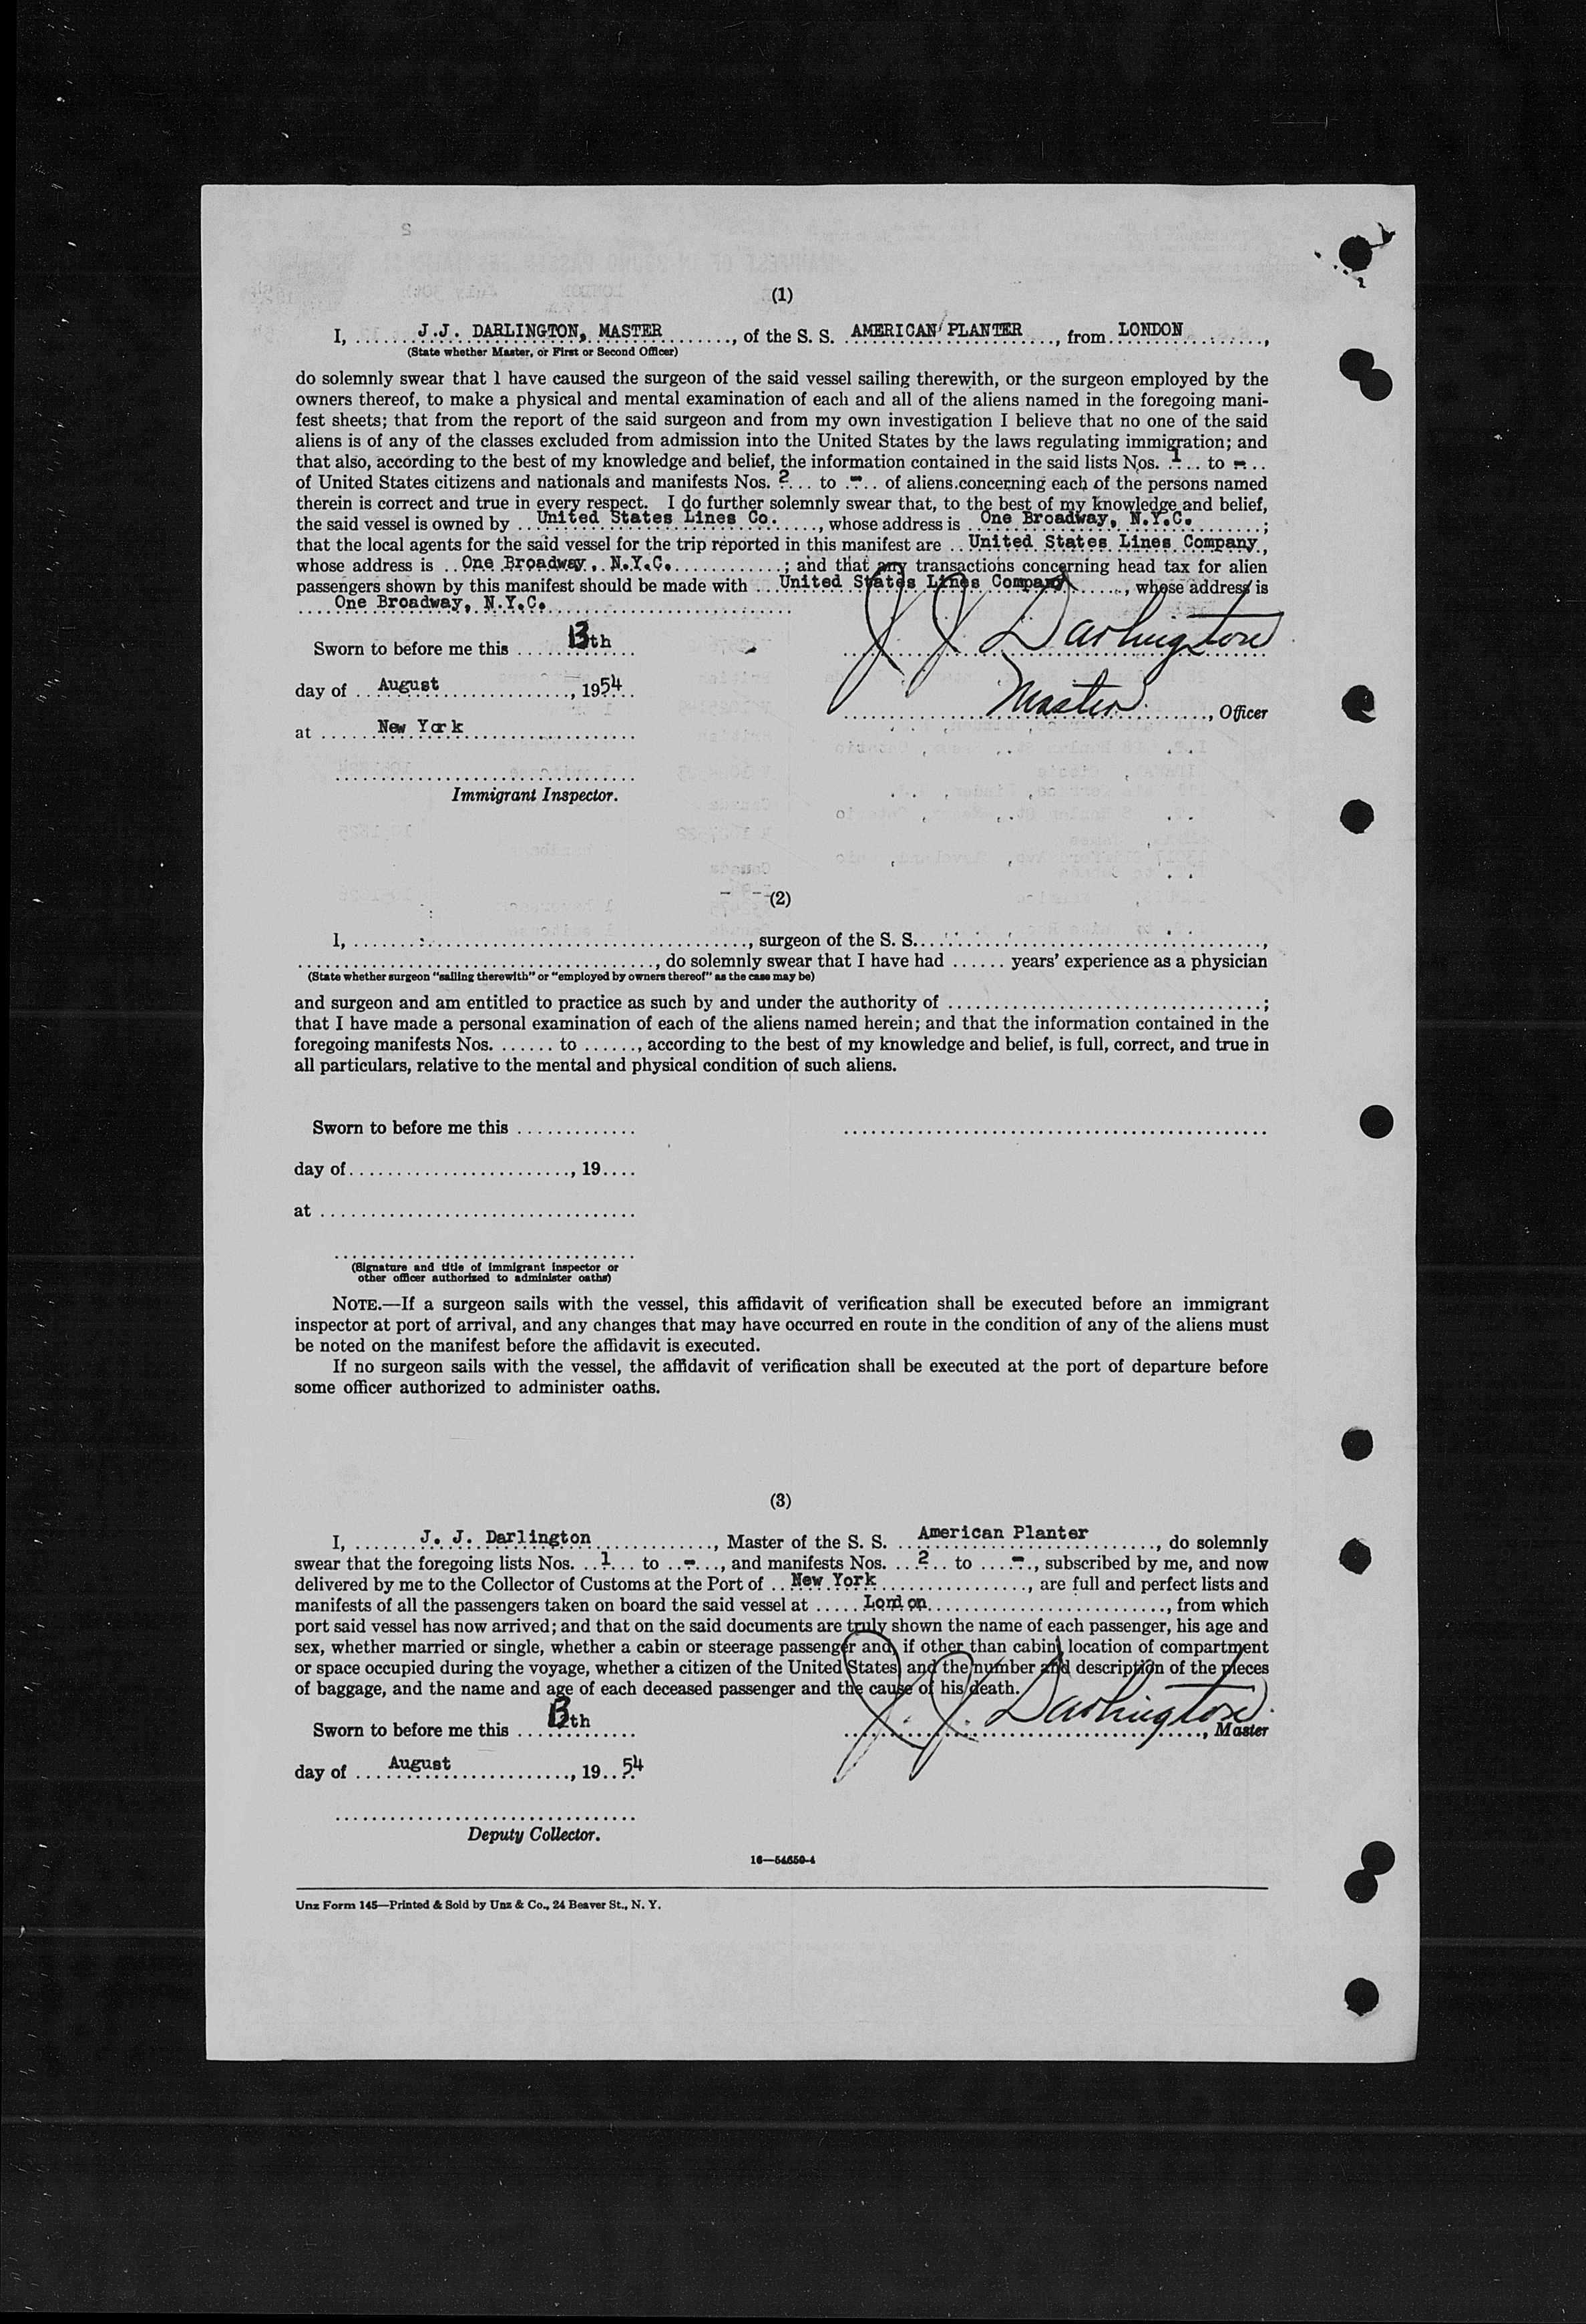 (1)
I, J.J. DARLINGTON, MASTER, of the S. S. AMERICAN PLANTER, from LONDON,
(State whether Master, or First or Second Officer)
do solemnly swear that I have caused the surgeon of the said vessel sailing therewith, or the surgeon employed by the
owners thereof, to make a physical and mental examination of each and all of the aliens named in the foregoing mani-
fest sheets; that from the report of the said surgeon and from my own investigation I believe that no one of the said
aliens is of any of the classes excluded from admission into the United States by the laws regulating immigration; and
that also, according to the best of my knowledge and belief, the information contained in the said lists Nos. 1 to -
of United States citizens and nationals and manifests Nos. 2 to - of aliens concerning each of the persons named
therein is correct and true in every respect. I do further solemnly swear that, to the best of my knowledge and belief,
the said vessel is owned by United States Lines Co., whose address is One Broadway, N.Y.C.;
that the local agents for the said vessel for the trip reported in this manifest are United States Lines Company,
whose address is One Broadway, N.Y.C.; and that any transactions concerning head tax for alien
passengers shown by this manifest should be made with United States Lines Company, whose address is
One Broadway, N.Y.C.
Sworn to before me this 13th
J J Darlington
day of August, 1954
Master, Officer
at New York
Immigrant Inspector.
(2)
I, , surgeon of the S. S. ,
, do solemnly swear that I have had ...... years' experience as a physician
(State whether surgeon "sailing therewith" or "employed by owners thereof" as the case may be)
and surgeon and am entitled to practice as such by and under the authority of ;
that I have made a personal examination of each of the aliens named herein; and that the information contained in the
foregoing manifests Nos. ...... to ......, according to the best of my knowledge and belief, is full, correct, and true in
all particulars, relative to the mental and physical condition of such aliens.
Sworn to before me this
day of , 19....
at
(Signature and title of immigrant inspector or
other officer authorized to administer oaths)
NOTE.—If a surgeon sails with the vessel, this affidavit of verification shall be executed before an immigrant
inspector at port of arrival, and any changes that may have occurred en route in the condition of any of the aliens must
be noted on the manifest before the affidavit is executed.
If no surgeon sails with the vessel, the affidavit of verification shall be executed at the port of departure before
some officer authorized to administer oaths.
(3)
I, J. J. Darlington, Master of the S. S. American Planter, do solemnly
swear that the foregoing lists Nos. 1 to -, and manifests Nos. 2 to -, subscribed by me, and now
delivered by me to the Collector of Customs at the Port of New York, are full and perfect lists and
manifests of all the passengers taken on board the said vessel at London, from which
port said vessel has now arrived; and that on the said documents are truly shown the name of each passenger, his age and
sex, whether married or single, whether a cabin or steerage passenger and, if other than cabin, location of compartment
or space occupied during the voyage, whether a citizen of the United States, and the number and description of the pieces
of baggage, and the name and age of each deceased passenger and the cause of his death.
Sworn to before me this 13th
J. J. Darlington, Master
day of August, 1954
Deputy Collector.
16—54650-4
Unz Form 145—Printed & Sold by Unz & Co., 24 Beaver St., N. Y.